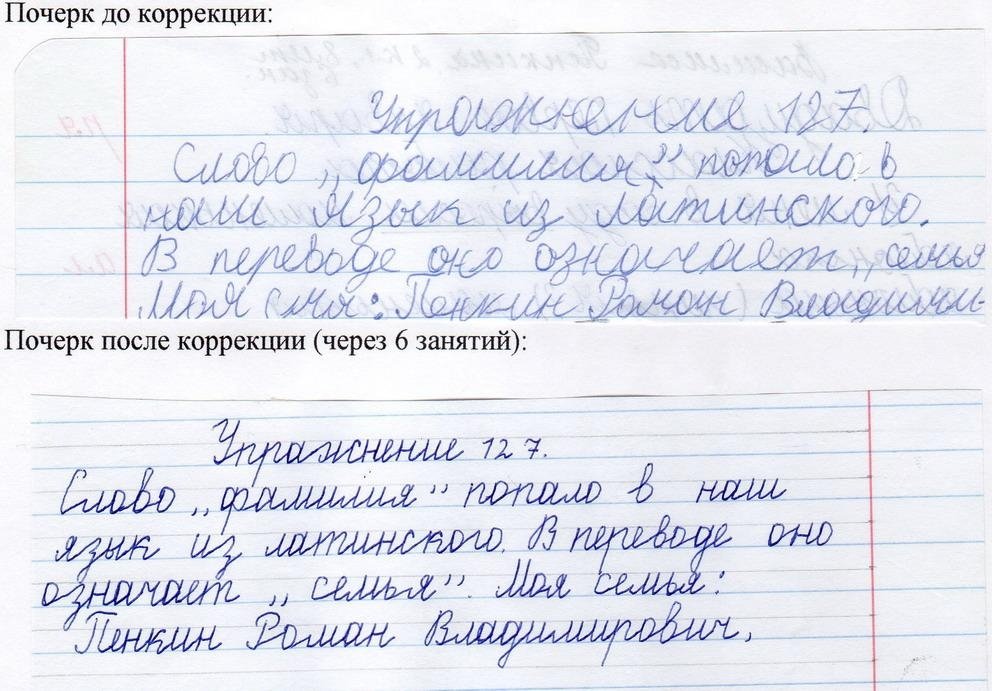 Почерк до коррекции:
Упражнение 127.
Слово „фамилия” попало в
наш язык из латинского.
В переводе оно означает „семья
Моя смя: Пенкин Роман Владими-
Почерк после коррекции (через 6 занятий):
Упражнение 127.
Слово „фамилия” попало в наш
язык из латинского. В переводе оно
означает „семья”. Моя семья:
Пенкин Роман Владимирович.